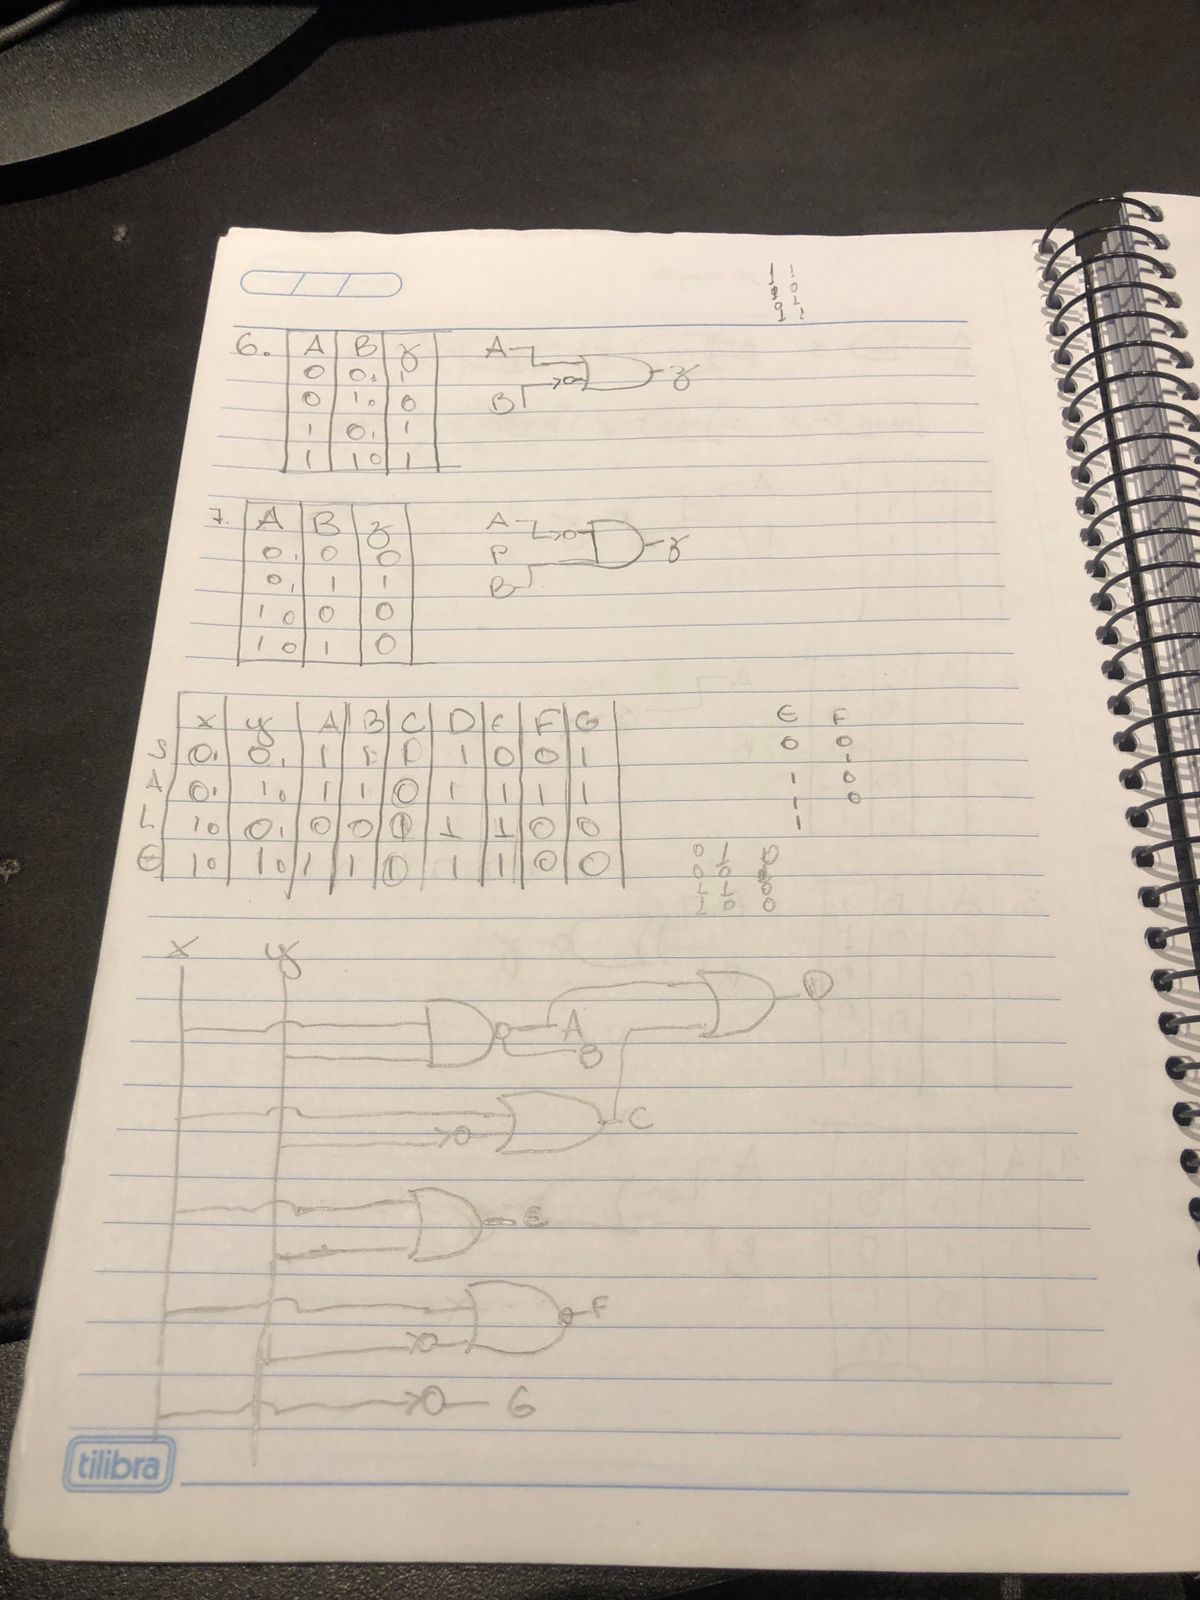 1 1
0 0
0 1
1 1
6. A B z
0 0 1
0 1 0
1 0 1
1 1 0 1
A
B
z
7. A B z
0 0 0
0 1 1
1 0 0 0
1 0 1 0
A
P
B
z
x y A B C D E F G
S 0 0 1 1 1 0 0 1
A 0 1 0 1 1 0 1 1 1 1
L 1 0 0 0 0 1 1 0 0
E 1 0 1 0 1 1 0 1 1 0 0
E F
0 0
1
1 0
1 0
1
0 1
0 0
1 1 0
1 0 0
x y
A
B
D
C
E
F
G
tilibra